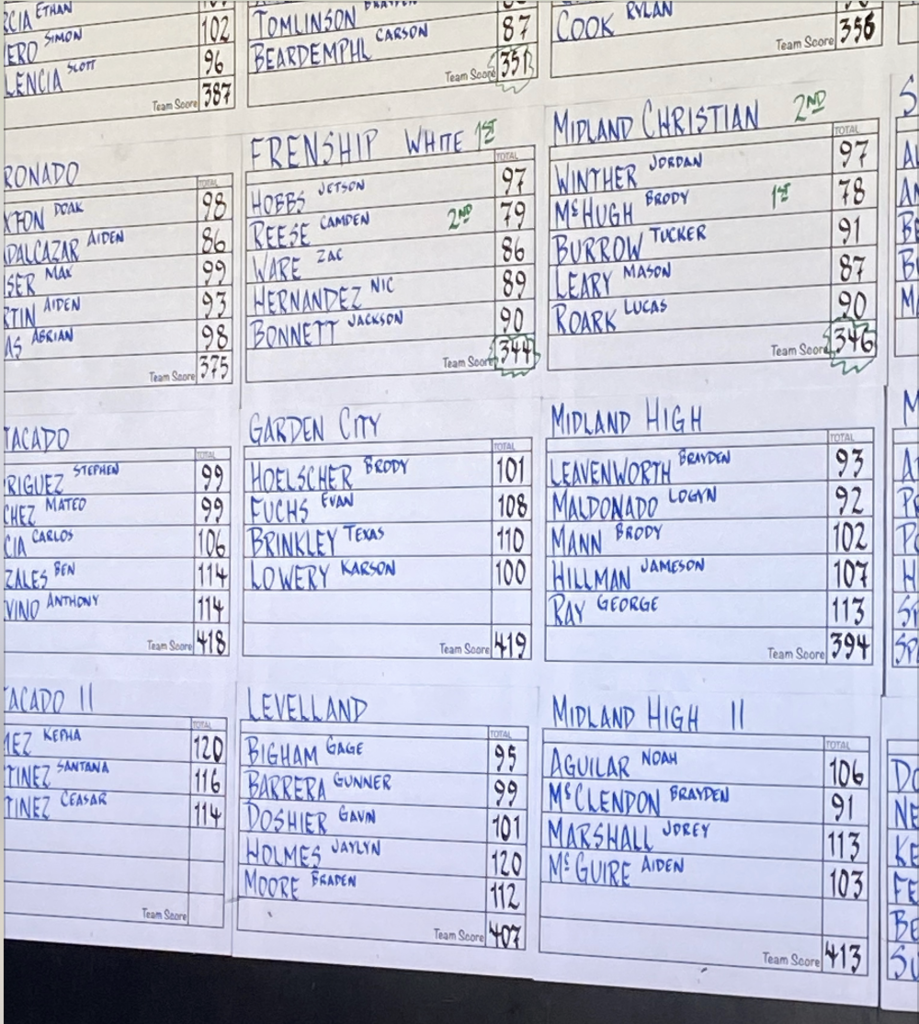 ETHAN
SIMON 102
SLOTT 96
Team Score 387
TOMLINSON 87
BEARDEMPHL CARSON
Team Score 351
COOK RYLAN
Team Score 356
TOTAL
DOAK 98
AIDEN 86
MAX 99
AIDEN 93
98
Team Score 375
FRENSHIP WHITE 1ST
TOTAL
HOBBS JETSON 97
REESE CAMDEN 2ND 79
WARE ZAC 86
HERNANDEZ NIC 89
BONNETT JACKSON 90
Team Score 344
MIDLAND CHRISTIAN 2ND
TOTAL
WINTHER JORDAN 97
McHUGH BRODY 1ST 78
BURROW TUCKER 91
LEARY MASON 87
ROARK LUCAS 90
Team Score 346
TOTAL
STEPHEN 99
MATEO 99
CARLOS 106
BEN 114
ANTHONY 114
Team Score 418
GARDEN CITY
TOTAL
HOELSCHER BRODY 101
FUCHS EVAN 108
BRINKLEY TEXAS 110
LOWERY KARSON 100
Team Score 419
MIDLAND HIGH
TOTAL
LEAVENWORTH BRAYDEN 93
MALDONADO LOGYN 92
MANN BRODY 102
HILLMAN JAMESON 107
RAY GEORGE 113
Team Score 394
II
TOTAL
KEPHA 120
SANTANA 116
CEASAR 114
Team Score
LEVELLAND
TOTAL
BIGHAM GAGE 95
BARRERA GUNNER 99
DOSHIER GAVIN 101
HOLMES JAYLYN 120
MOORE BRADEN 112
Team Score 407
MIDLAND HIGH II
TOTAL
AGUILAR NOAH 106
McCLENDON BRAYDEN 91
MARSHALL JOREY 113
McGUIRE AIDEN 103
Team Score 413